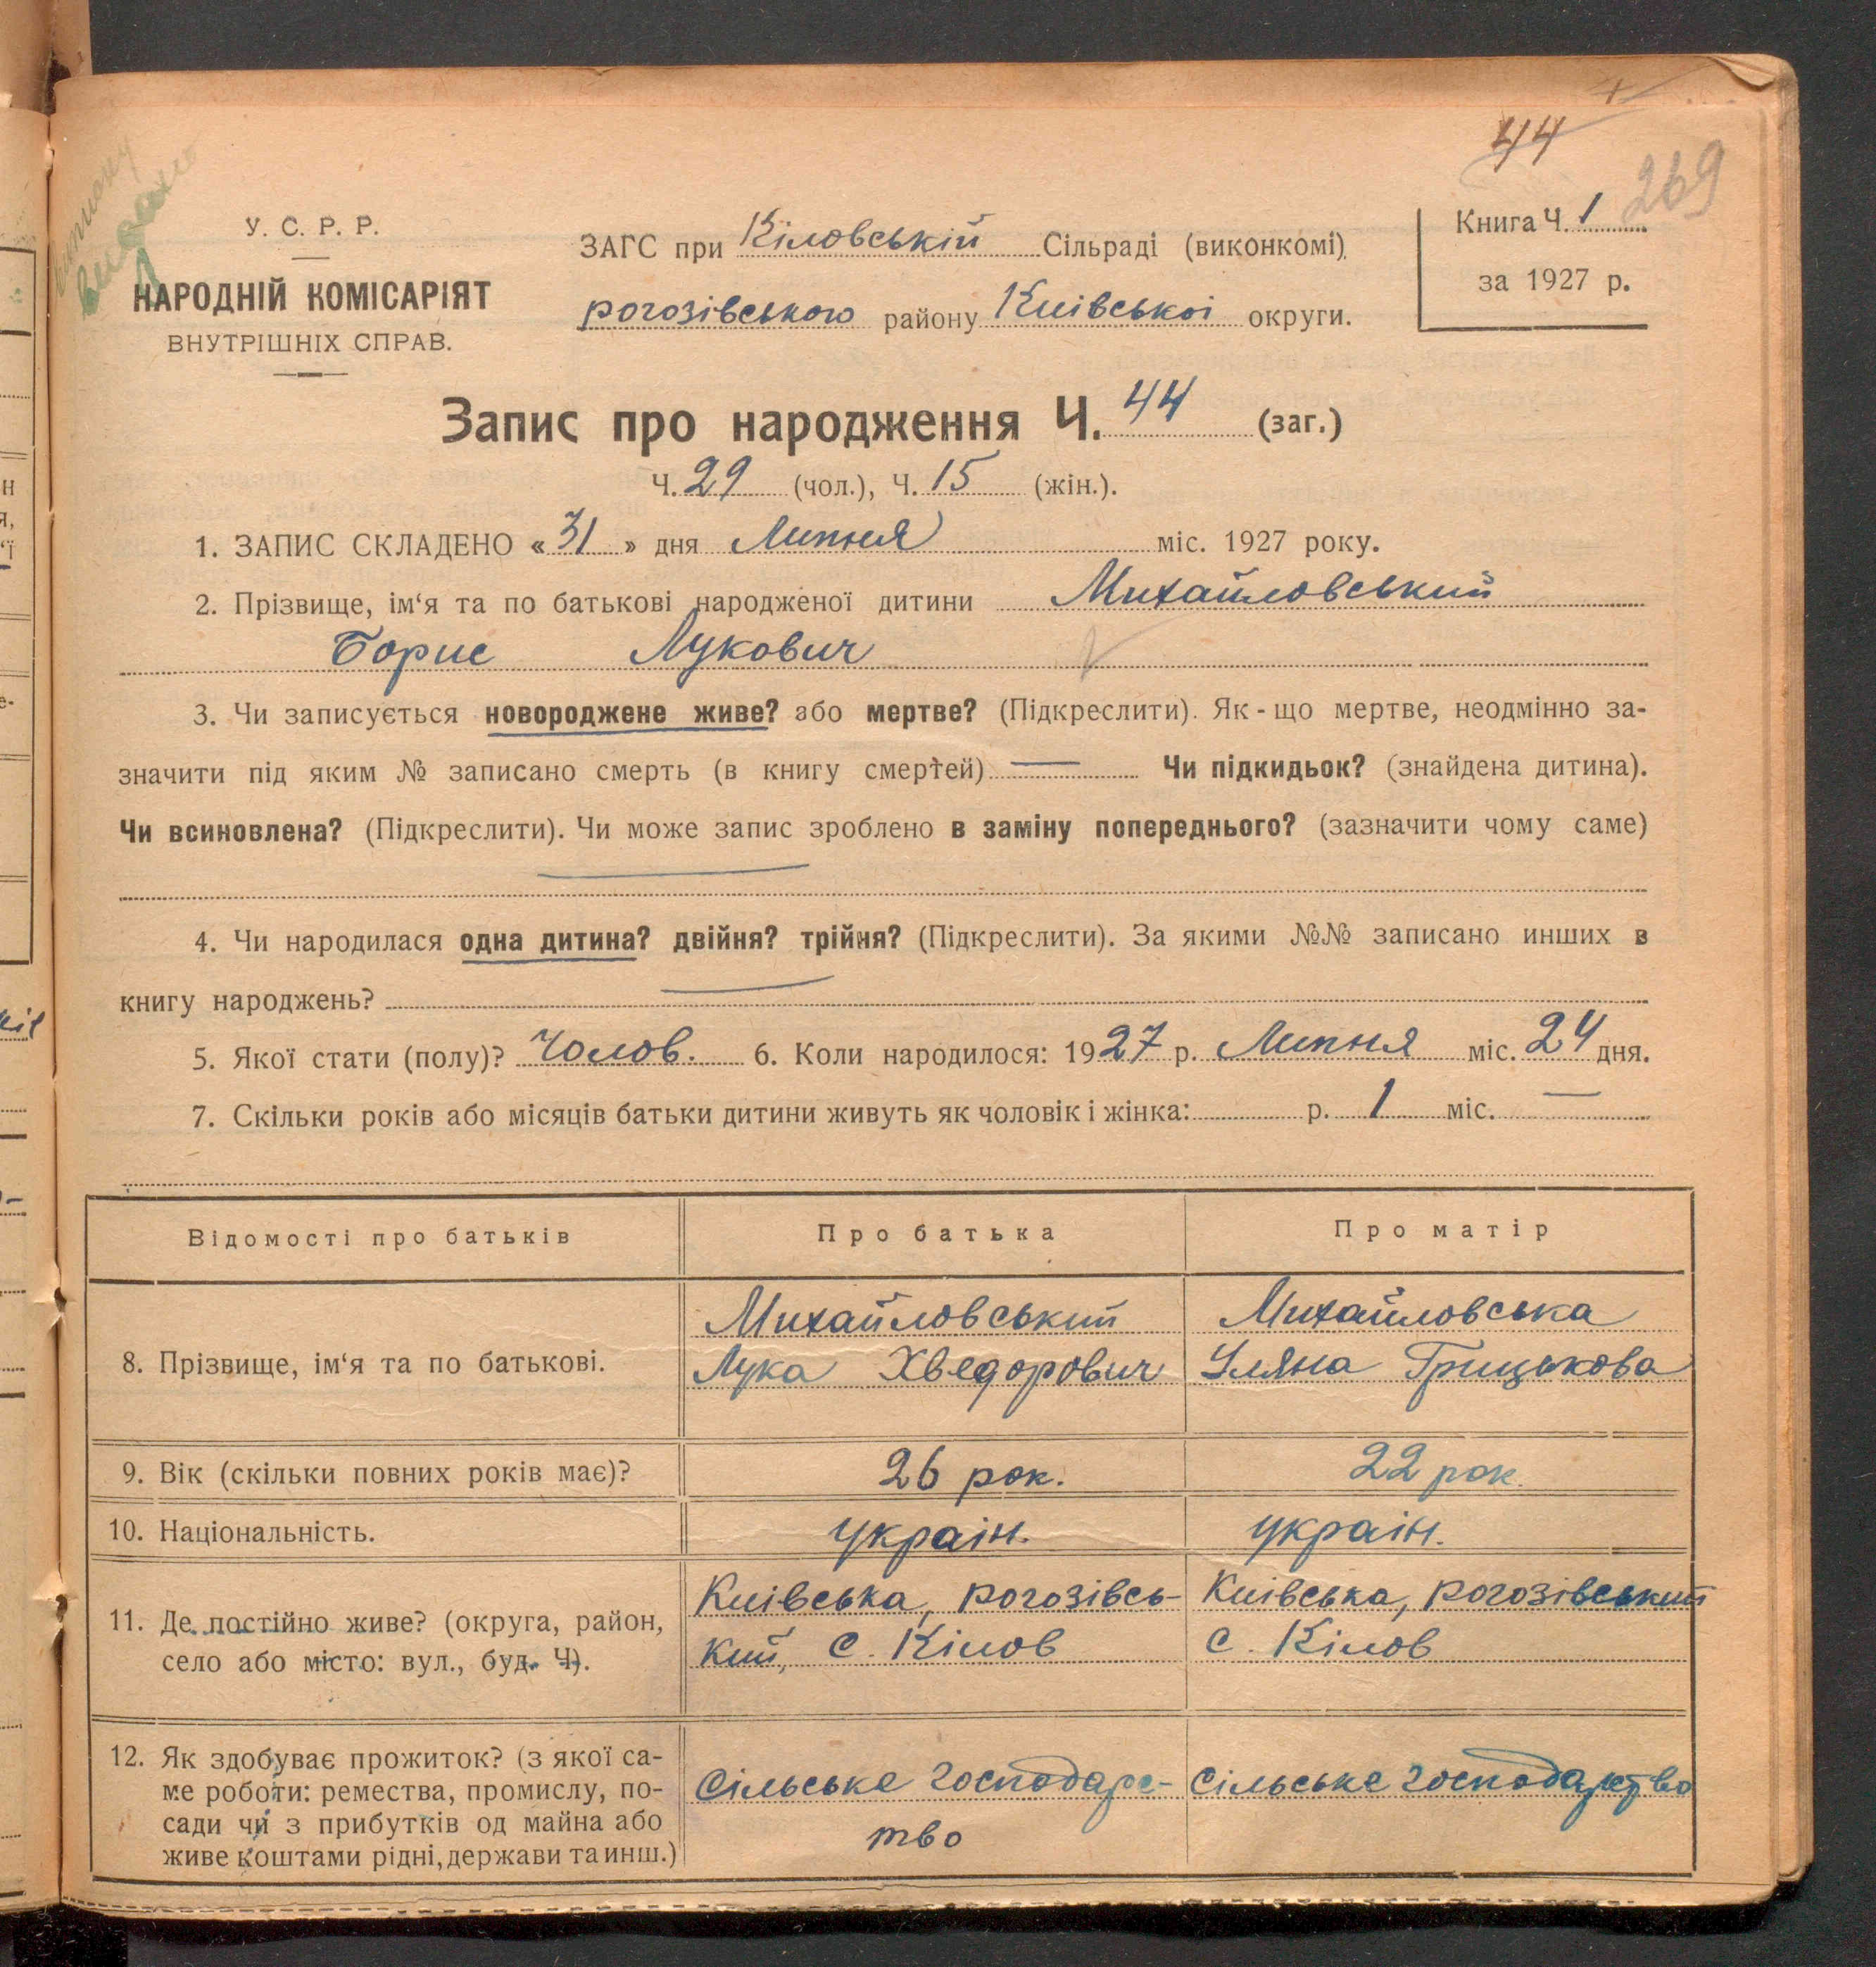 44
269
виписку
видано
У. С. Р. Р.
НАРОДНІЙ КОМІСАРІЯТ
ВНУТРІШНІХ СПРАВ.
ЗАГС при Кіловській Сільраді (виконкомі)
рогозівського району Київської округи.
Книга Ч. 1
за 1927 р.
Запис про народження Ч. 44 (заг.)
Ч. 29 (чол.), Ч. 15 (жін.).
1. ЗАПИС СКЛАДЕНО « 31 » дня Липня міс. 1927 року.
2. Прізвище, ім‘я та по батькові народженої дитини Михайловський
Борис Лукович
3. Чи записується новороджене живе? або мертве? (Підкреслити). Як - що мертве, неодмінно за-
значити під яким № записано смерть (в книгу смертей) — Чи підкидьок? (знайдена дитина).
Чи всиновлена? (Підкреслити). Чи може запис зроблено в заміну попереднього? (зазначити чому саме)
4. Чи народилася одна дитина? двійня? трійня? (Підкреслити). За якими №№ записано инших в
книгу народжень?
5. Якої стати (полу)? Чолов. 6. Коли народилося: 1927 р. Липня міс. 24 дня.
7. Скільки років або місяців батьки дитини живуть як чоловік і жінка: р. 1 міс. —
Відомості про батьків
Про батька
Про матір
8. Прізвище, ім‘я та по батькові.
Михайловський
Лука Хведорович
Михайловська
Уляна Грицькова
9. Вік (скільки повних років має)?
26 рок.
22 рок.
10. Національність.
украін.
украін.
11. Де постійно живе? (округа, район,
село або місто: вул., буд. Ч).
Киівська, рогозівсь-
кий, с. Кілов
Киівська, рогозівський
с. Кілов
12. Як здобуває прожиток? (з якої са-
ме роботи: ремества, промислу, по-
сади чи з прибутків од майна або
живе коштами рідні, держави та инш.)
сільське господарс-
тво
сільське господарство